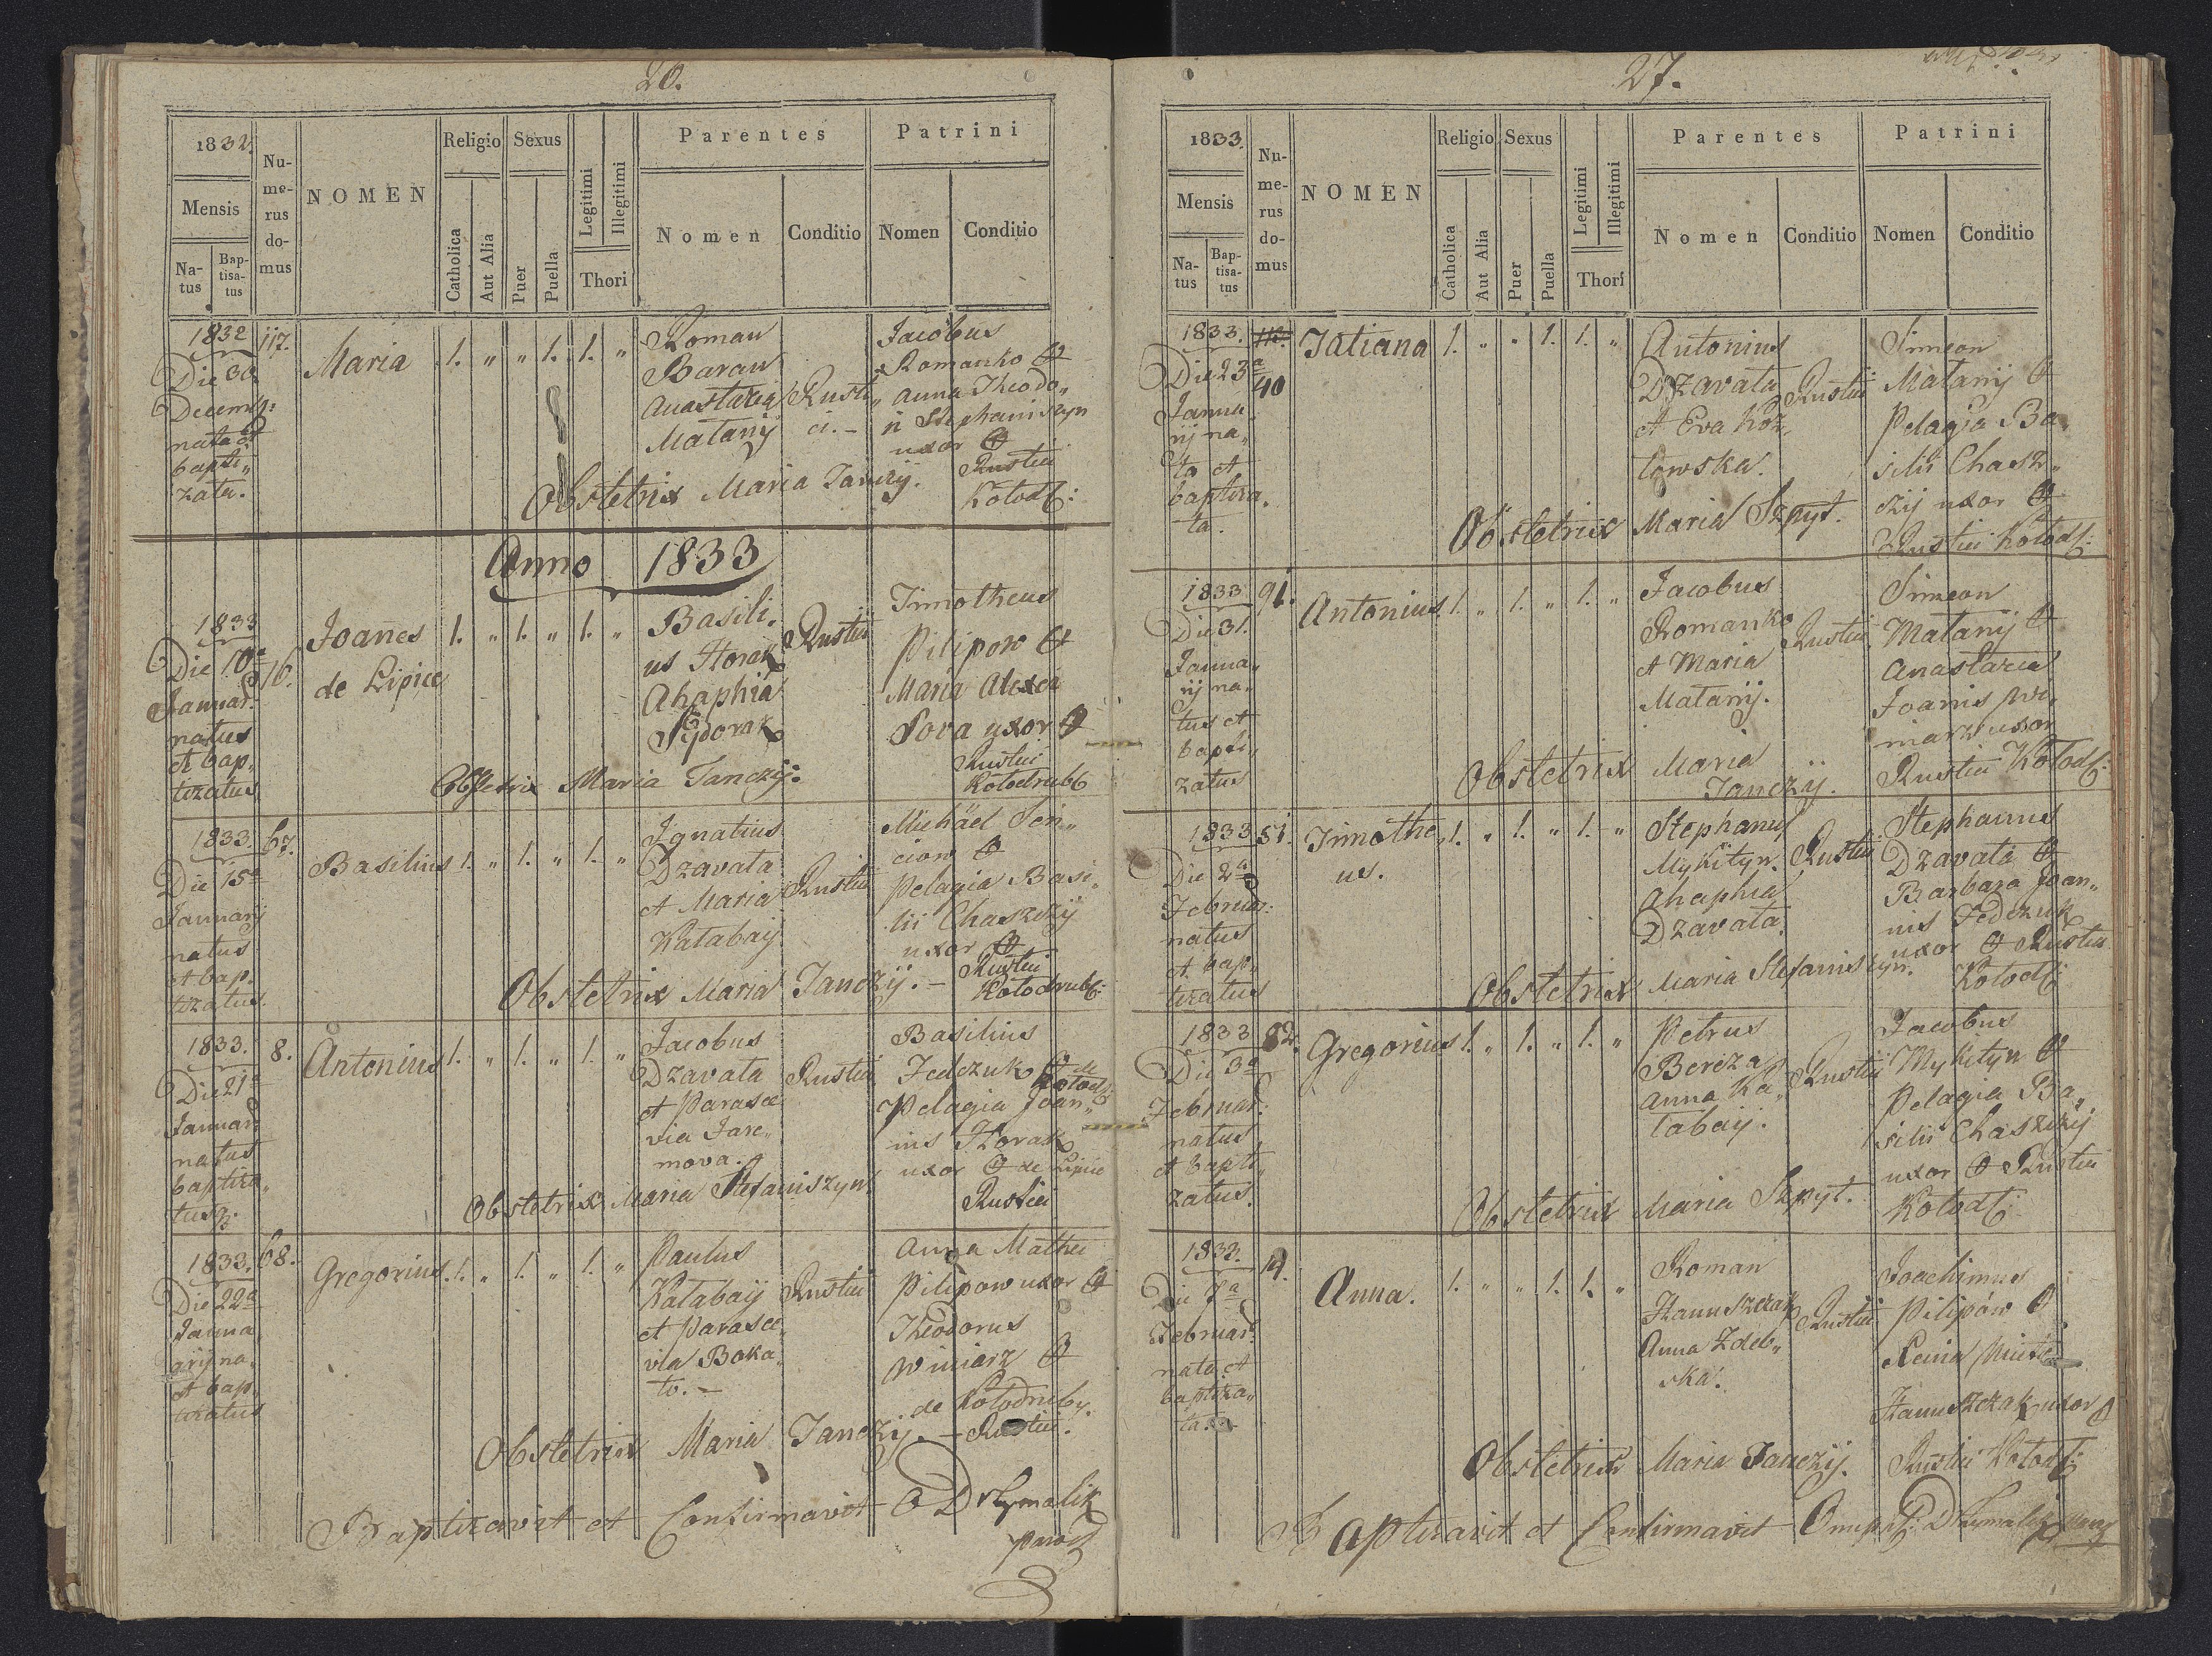 26.
1832.
Mensis
Na-
tus
Bap-
tisa-
tus
Nu-
me-
rus
do-
mus
NOMEN
Religio
Catholica
Aut Alia
Sexus
Puer
Puella
Legitimi
Illegitimi
Thori
Parentes
Nomen
Conditio
Patrini
Nomen
Conditio
1832
Die 30
Decemb:
nata et
bapti„
zata.
117.
Maria
1. „ „ 1. 1. „
Roman
Baran
Anastazia
Matanij
Rusti„
ci.-
Jacobus
Romanko et
Anna Theodo„
ri Stephaniszyn
uxor
Rustici
Kołod:
Obstetrix Maria Janczÿ.
Anno 1833
1833
Die 10a
Januar.
natus
et bap„
tizatus
16.
Joanes
de Lipice
1. „ 1. „ 1. „
Basili„
us Horak
Ahaphia
Sydorak
Rustici
Timotheus
Pilipow et
Maria Alexei
Sova uxor
Rustici
Kołodrubÿ
Obstetrix Maria Janczÿ.
1833.
Die 15a
Januarÿ
natus
et bap„
tizatus.
67.
Basilius
1. „ 1. „ 1. „
Ignatius
Dzavała
et Maria
Kałabaij
Rustici
Michäel Sen„
ciow et
Pelagia Basi„
lii Chaszczÿ
uxor
Rustici
Kołodrub:
Obstetrix Maria Janczÿ.-
1833.
Die 21a
Januar:
natus
baptiza„
tus.
8.
Antonius
1. „ 1. „ 1. „
Jacobus
Dzavała
et Parasce
via Jare„
mova.
Rustici
Basilius
Fedczuk et de
Kołod:
Pelagia Joan„
nis Horak
uxor de Lipice
Rustici
Obstetrix Maria Stefaniszyn.
1833.
Die 22a
Janu
arij na„
et bap„
tizatus
68.
Gregorius.
1. „ 1. „ 1. „
Paulus
Kałabaij
et Parasce„
via Boka„
ło.-
Rustici
Anna Mathei
Pilipow uxor et
Theodorus
Winiarz
de Kołodruby.
Rustici.
Obstetrix Maria Janczÿ.-
Baptizavit et Confirmavit O Drhymalik
paroch
27.
1833.
Mensis
Na-
tus
Bap-
tisa-
tus
Nu-
me-
rus
do-
mus
NOMEN
Religio
Catholica
Aut Alia
Sexus
Puer
Puella
Legitimi
Illegitimi
Thori
Parentes
Nomen
Conditio
Patrini
Nomen
Conditio
1833.
Die 23a
Janua„
rij na„
ta et
baptiza„
ta.
40
Tatiana
1. „ „ 1. 1. „
Antonius
Dzavała
et Eva Koz„
łowska.
Rustici
Simeon
Matanij et
Pelagia Ba„
silii Chasz„
czij uxor
Rustici Kołod:
Obstetrix Maria Szpyt.
1833
Die 31.
Janua„
rij na„
tus et
bapti„
zatus
91.
Antonius.
1. „ 1. „ 1. „
Jacobus
Romanko
et Maria
Matanij.
Rustici
Simeon
Matanij et
Anastazia
Joanis Wi„
niarz uxor
Rustici Kołod:
Obstetrix Maria
Janczÿ.
1833
Die 2a
Februar:
natus
et bap„
tizatus
51.
Timothe„
us.
1. „ 1. „ 1. „
Stephanus
Mykityn.
Ahaphia
Dzavała.
Rustici
Stephanus
Dzavała et
Barbara Joan„
nis Fedczuk
uxor Rustici
Kołod:
Obstetrix Maria Stefaniszyn.
1833
Die 3a
Februar:
natus
et bapti„
zatus.
82.
Gregorius
1. „ 1. „ 1. „
Petrus
Bereza
Anna Ka„
łabaij.
Rustici
Jacobus
Mykityn et
Pelagia Ba„
silii Chaszczij
uxor Rustici
Kołod:
Obstetrix Maria Szpyt.
1833.
Die 7a
Februar:
nata et
baptiza„
ta.
Anna.
1. „ „ 1. 1. „
Roman
Hanuszczak
Anna Zdeb„
ska.
Rustici
Joachimus
Pilipów
Hanuszczak uxor
Rustici Kołod:
Obstetrix Maria Janczÿ.
Baptizavit et Confirmavit Onuph: Drhymalik